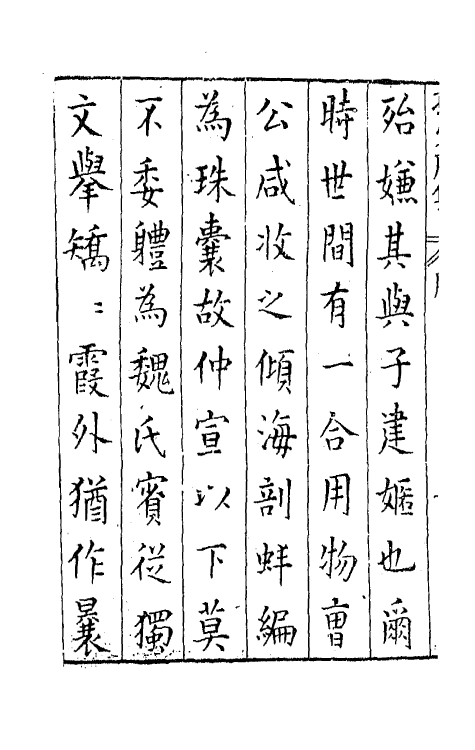 殆嫌其與子建嫟也爾
時世間有一合用物曹
公咸收之傾海剖蚌編
為珠囊故仲宣以下莫
不委體為魏氏賓從獨
文舉矯〻霞外猶作曩